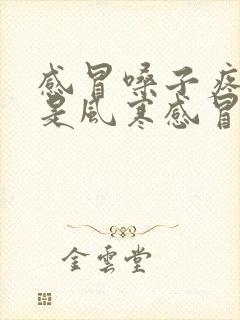 感冒嗓子疼
是風寒感冒
金雲堂